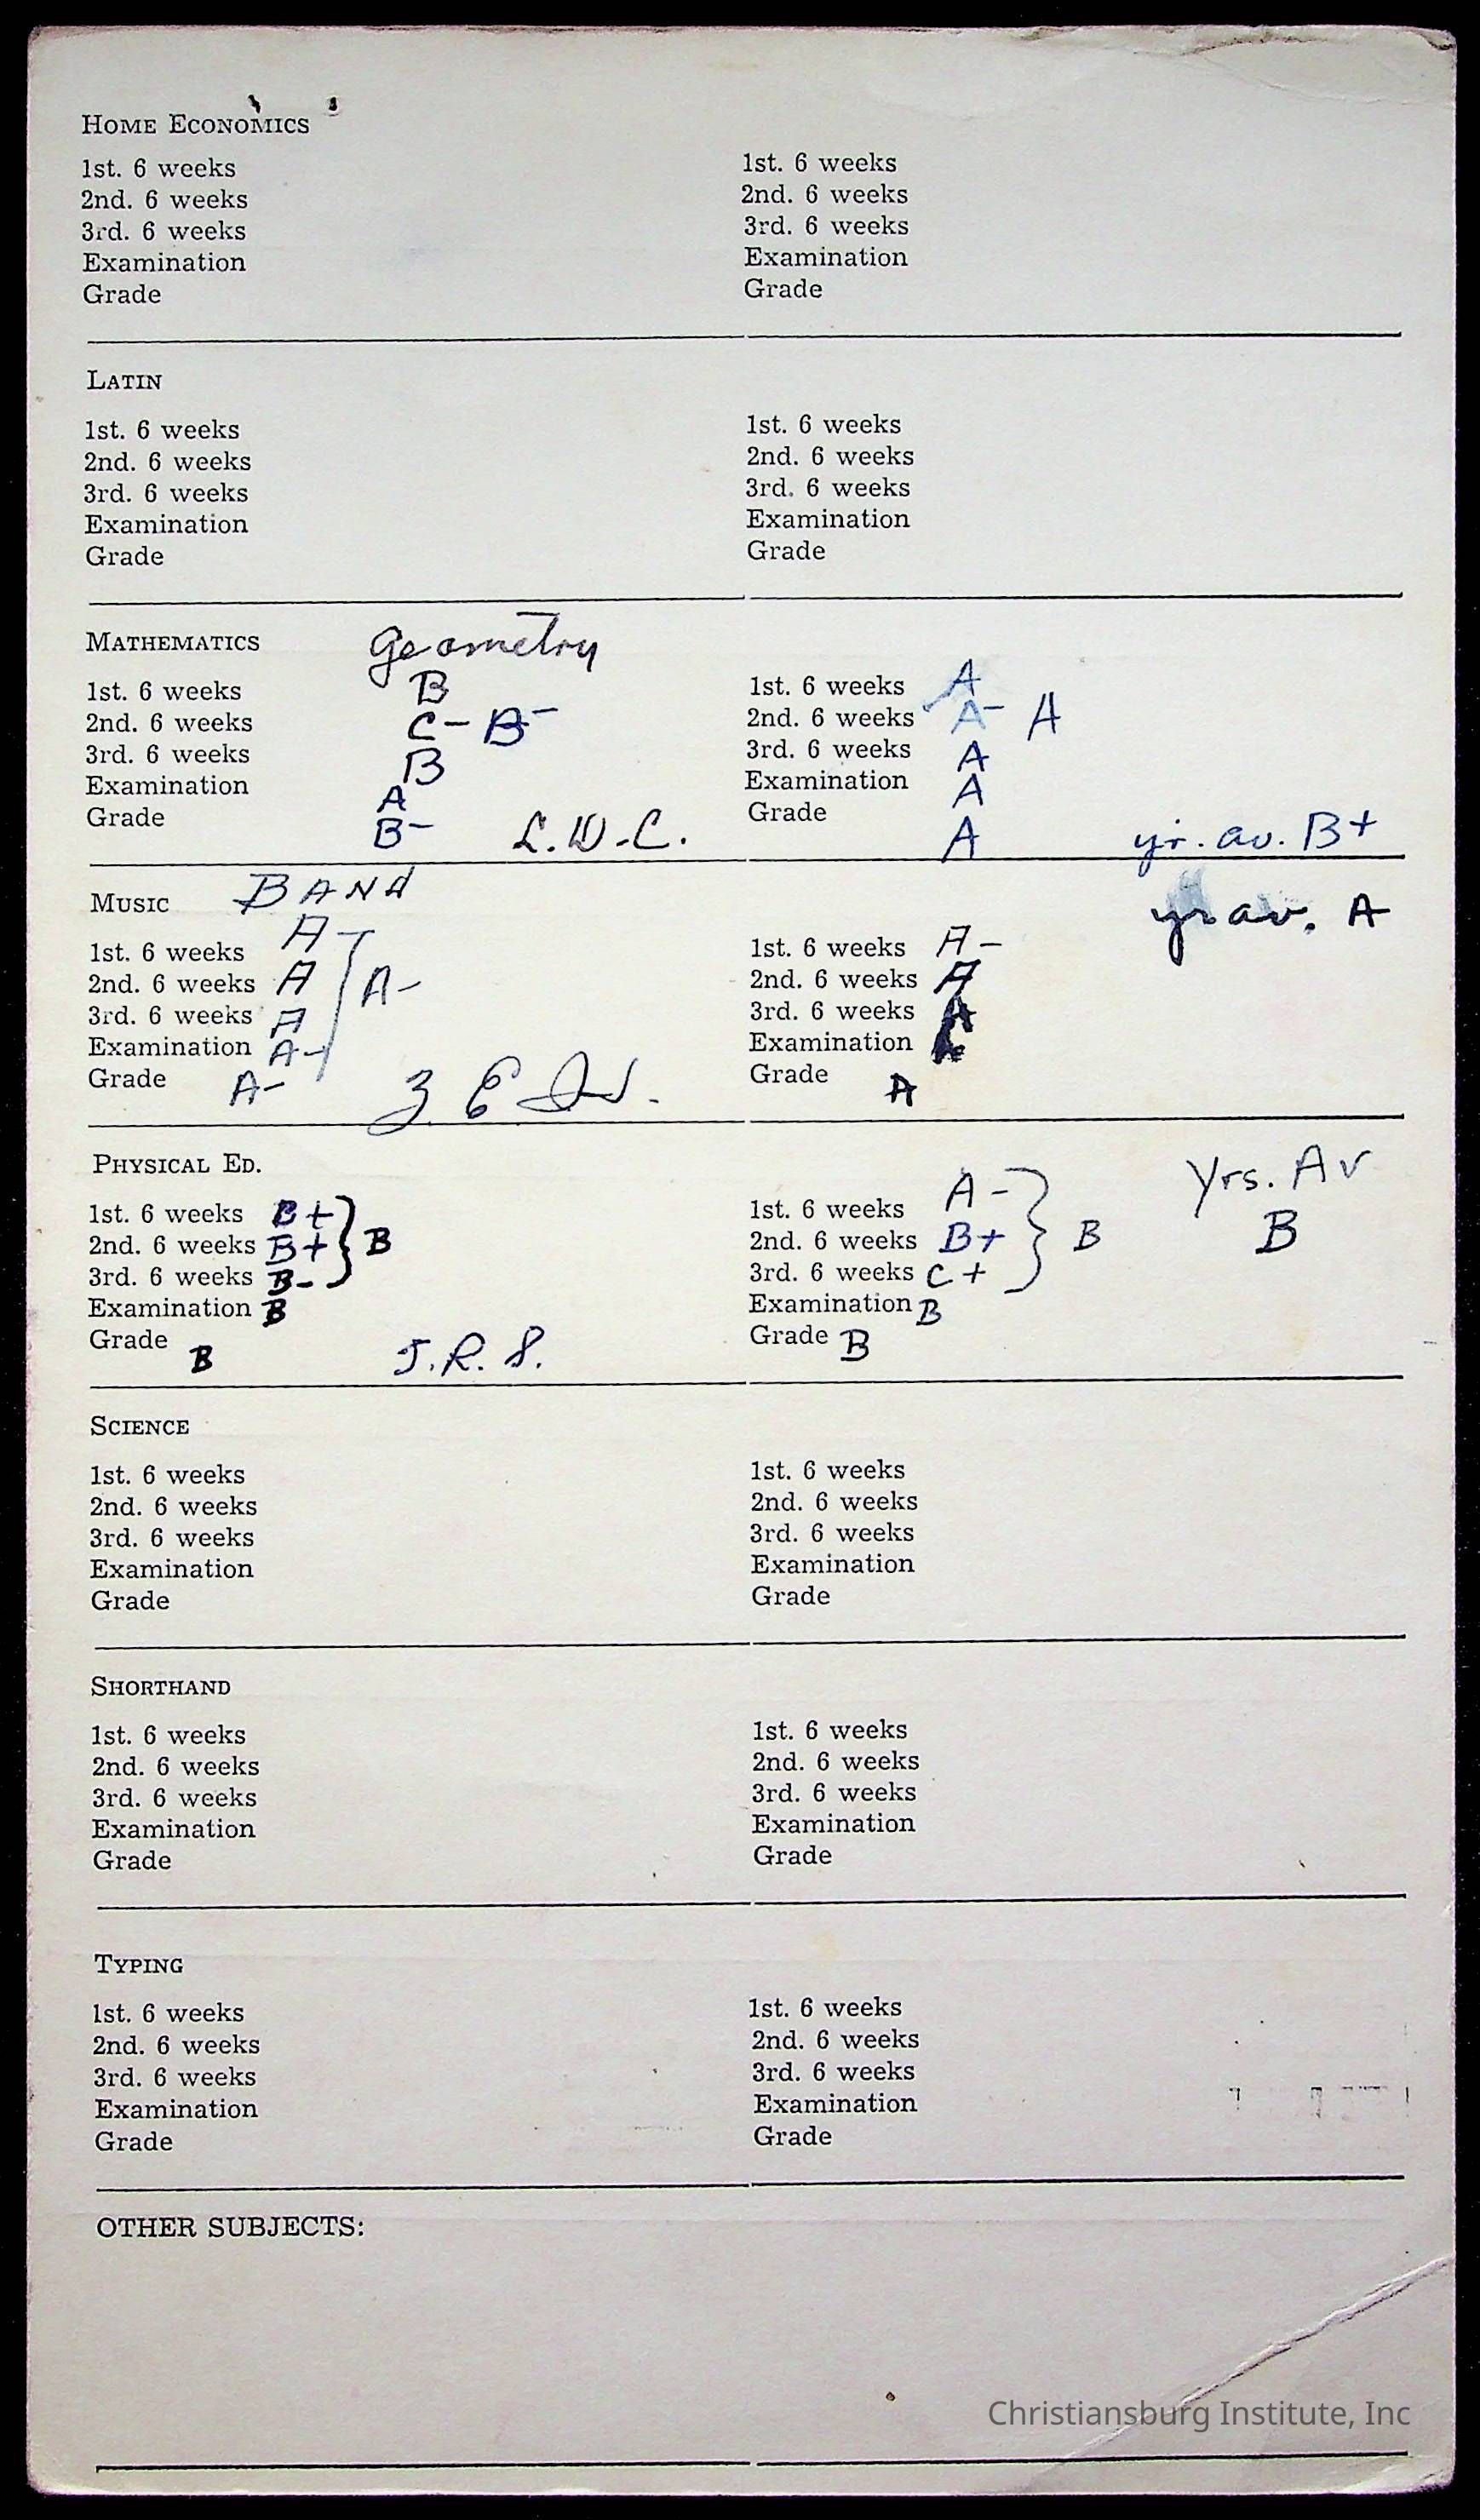 HOME ECONOMICS
1st. 6 weeks 1st. 6 weeks
2nd. 6 weeks 2nd. 6 weeks
3rd. 6 weeks 3rd. 6 weeks
Examination Examination
Grade Grade
LATIN
1st. 6 weeks 1st. 6 weeks
2nd. 6 weeks 2nd. 6 weeks
3rd. 6 weeks 3rd. 6 weeks
Examination Examination
Grade Grade
MATHEMATICS Geometry
1st. 6 weeks B 1st. 6 weeks A
2nd. 6 weeks C- B- 2nd. 6 weeks A- A
3rd. 6 weeks B 3rd. 6 weeks A
Examination A Examination A
Grade B- L.W.C. Grade A yr. av. B+
MUSIC BAND yr av. A
1st. 6 weeks A- 1st. 6 weeks A-
2nd. 6 weeks A A- 2nd. 6 weeks A
3rd. 6 weeks A 3rd. 6 weeks A
Examination A- Examination
Grade A- Grade A
PHYSICAL ED. Yrs. Av
1st. 6 weeks C+ 1st. 6 weeks A-
2nd. 6 weeks B+ B 2nd. 6 weeks B+ B B
3rd. 6 weeks B- 3rd. 6 weeks C+
Examination B Examination B
Grade B J.R.S. Grade B
SCIENCE
1st. 6 weeks 1st. 6 weeks
2nd. 6 weeks 2nd. 6 weeks
3rd. 6 weeks 3rd. 6 weeks
Examination Examination
Grade Grade
SHORTHAND
1st. 6 weeks 1st. 6 weeks
2nd. 6 weeks 2nd. 6 weeks
3rd. 6 weeks 3rd. 6 weeks
Examination Examination
Grade Grade
TYPING
1st. 6 weeks 1st. 6 weeks
2nd. 6 weeks 2nd. 6 weeks
3rd. 6 weeks 3rd. 6 weeks
Examination Examination
Grade Grade
OTHER SUBJECTS:
Christiansburg Institute, Inc